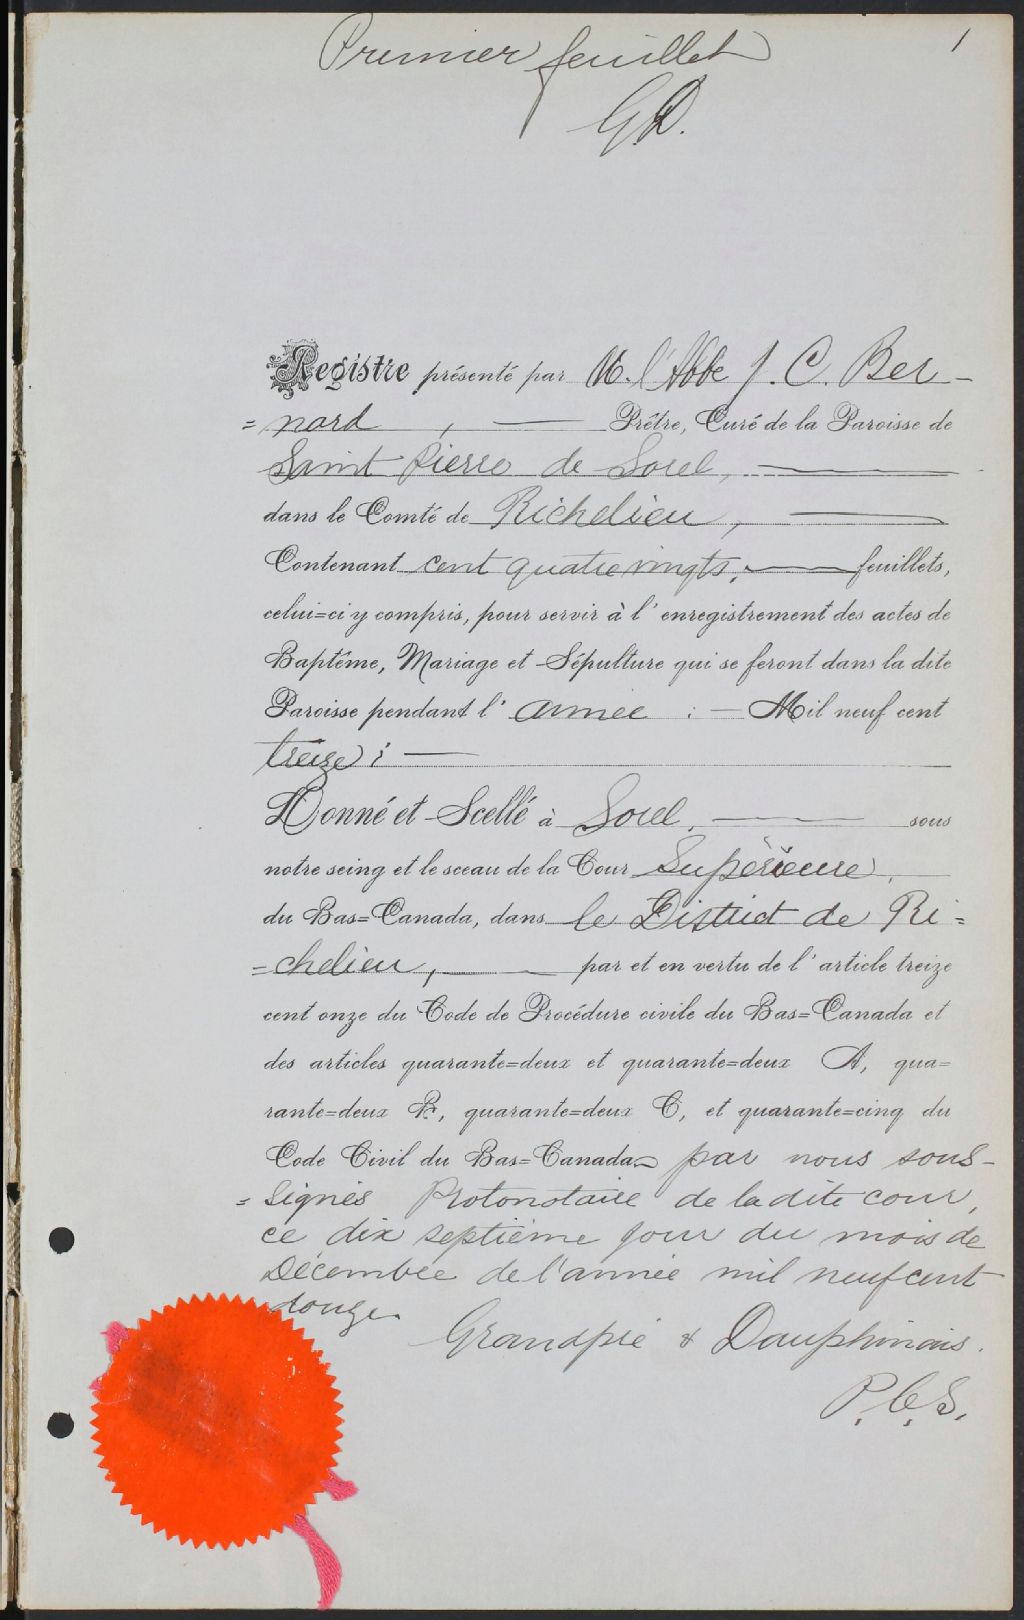 Premier feuillet
1
G.D.
Registre présenté par M. l'Abbe J. C. Ber-
=nard, Prêtre, Curé de la Paroisse de
Saint Pierre de Sorel,
dans le Comté de Richelieu,
Contenant cent quatre vingts, feuillets,
celui=ci y compris, pour servir à l'enregistrement des actes de
Baptême, Mariage et Sépulture qui se feront dans la dite
Paroisse pendant l'année : — Mil neuf cent
treize : —
Donné et Scellé à Sorel, sous
notre seing et le sceau de la Cour Supérieure,
du Bas=Canada, dans le District de Ri=
=chelieu, par et en vertu de l'article treize
cent onze du Code de Procédure civile du Bas=Canada et
des articles quarante=deux et quarante=deux A, qua=
rante=deux B, quarante=deux C, et quarante=cinq du
Code Civil du Bas=Canada par nous sous-
=signés Protonotaire de la dite cour,
ce dix septième jour du mois de
Décembre de l'année mil neuf cent
douze
Grandpré & Dauphinais.
P.C.S.